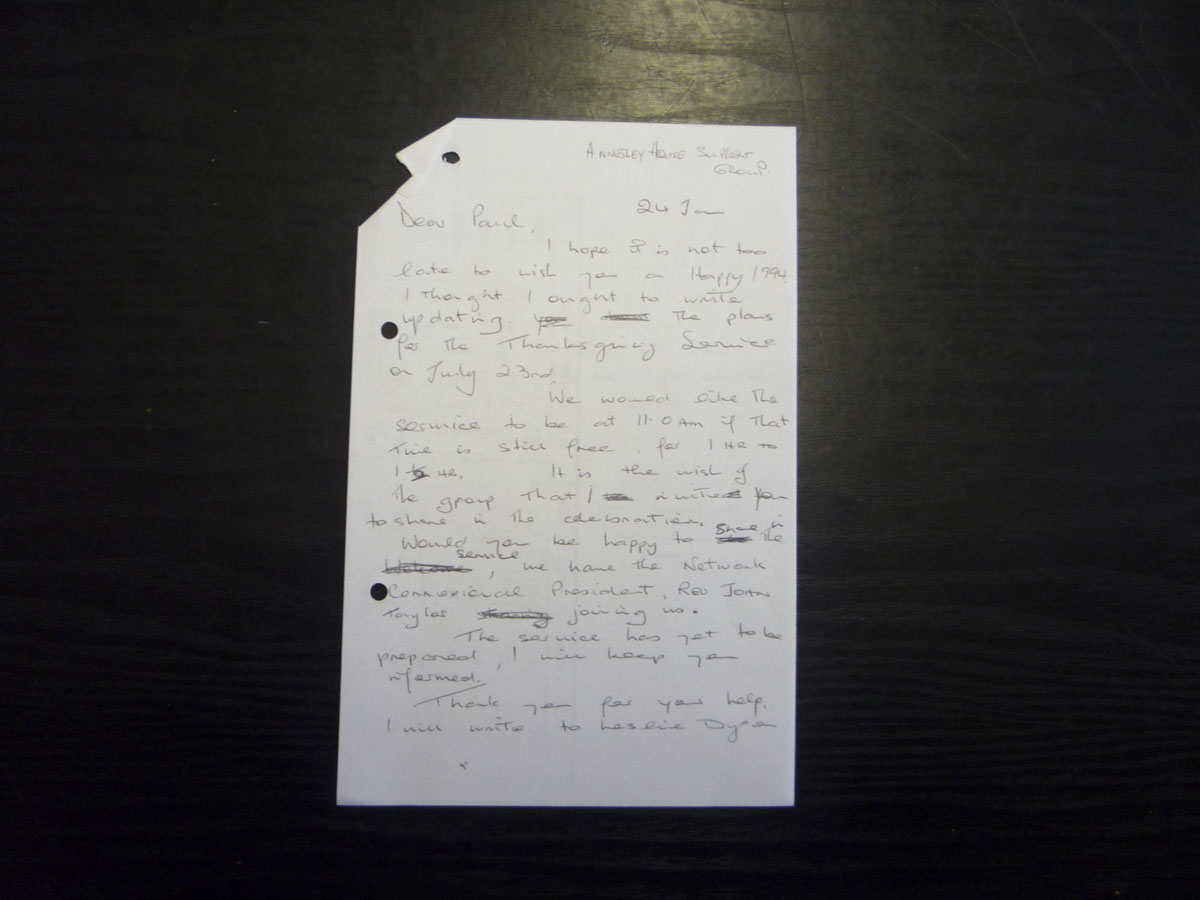 ANNESLEY HOUSE SUPPORT
GROUP.
24 Jan
Dear Paul,
I hope it is not too
late to wish you a Happy 1994.
I thought I ought to write
updating you the plans
for the Thanksgiving Service
on July 23rd.
We would like the
service to be at 11.0 AM if that
time is still free, for 1 HR to
1 HR. It is the wish of
the group that I invite you
to share in the celebration.
Would you be happy to share in the
service, we have the Network
Connexional President, REV JOHN
Taylor joining us.
The service has yet to be
prepared, I will keep you
informed.
Thank you for your help.
I will write to Leslie Dyson